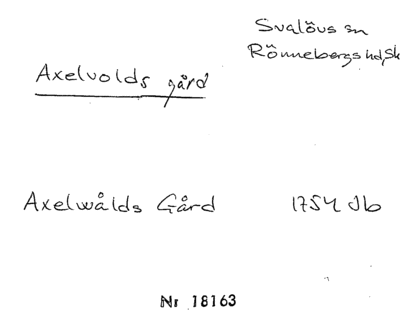 Svalövs sn
Rönnebergs hd, Sk
Axelvolds gård
Axelwålds Gård 1754 Jb
Nr 18163